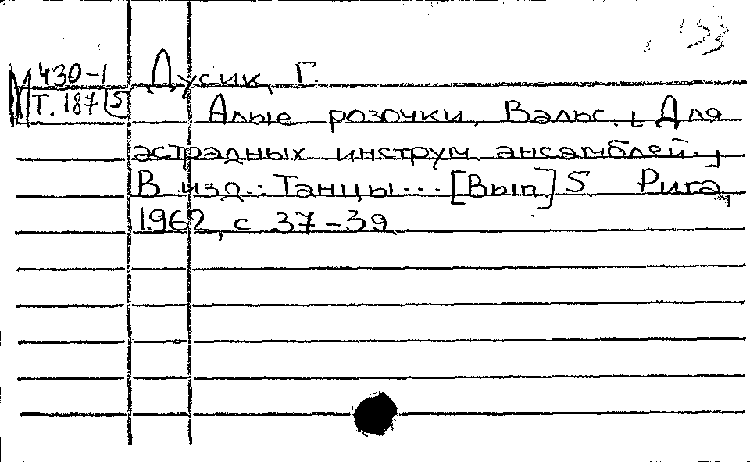 М 430-1 Дусик Г.
Т. 187/5 Алые розочки. Вальс. [Для
эстрадных инструм. ансамблей.]
В изд.: Танцы... [Вып] 5 Рига,
1962, с 37-39